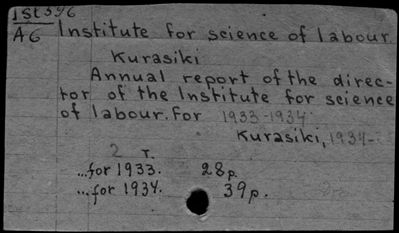 1St396
A6
Institute for science of labour
Kurasiki
Annual report of the direc-
tor of the Institute for science
of labour. For 1933-1934
Kurasiki, 1934-
2 T.
...for 1933. 28p.
...for 1934. 39p.